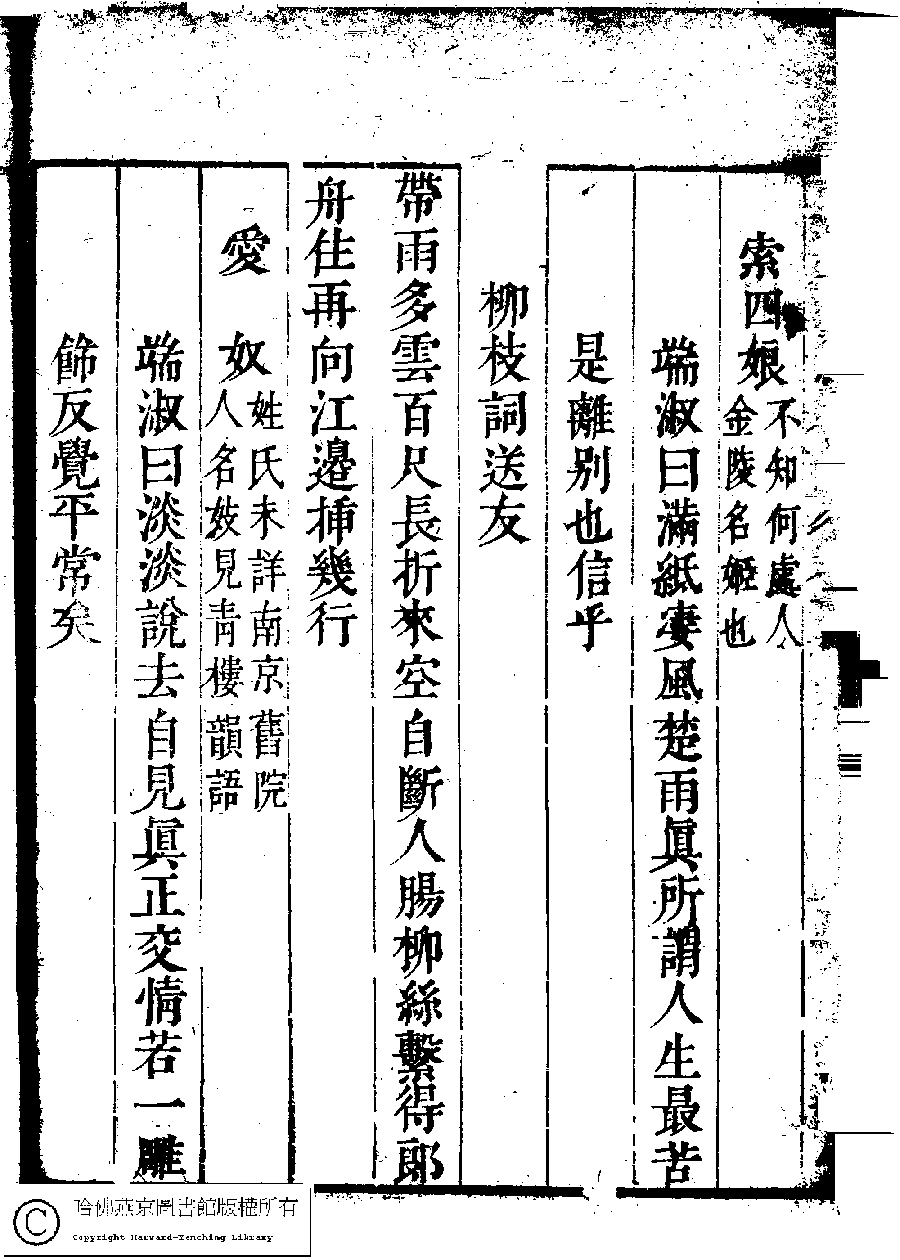 索四娘不知何處人金陵名姬也
端淑曰滿紙凄風楚雨眞所謂人生最苦
是離别也信乎
柳枝詞送友
帶雨多雲百尺長折來空自斷人腸柳絲繫得郎
舟住再向江邉揷幾行
愛奴姓氏未詳南京舊院人名妓見青樓韻語
端淑曰淡淡說去自見眞正交情若一雕
餙反覺平常矣
哈佛燕京圖書館版權所有
Copyright Harvard-Yenching Library